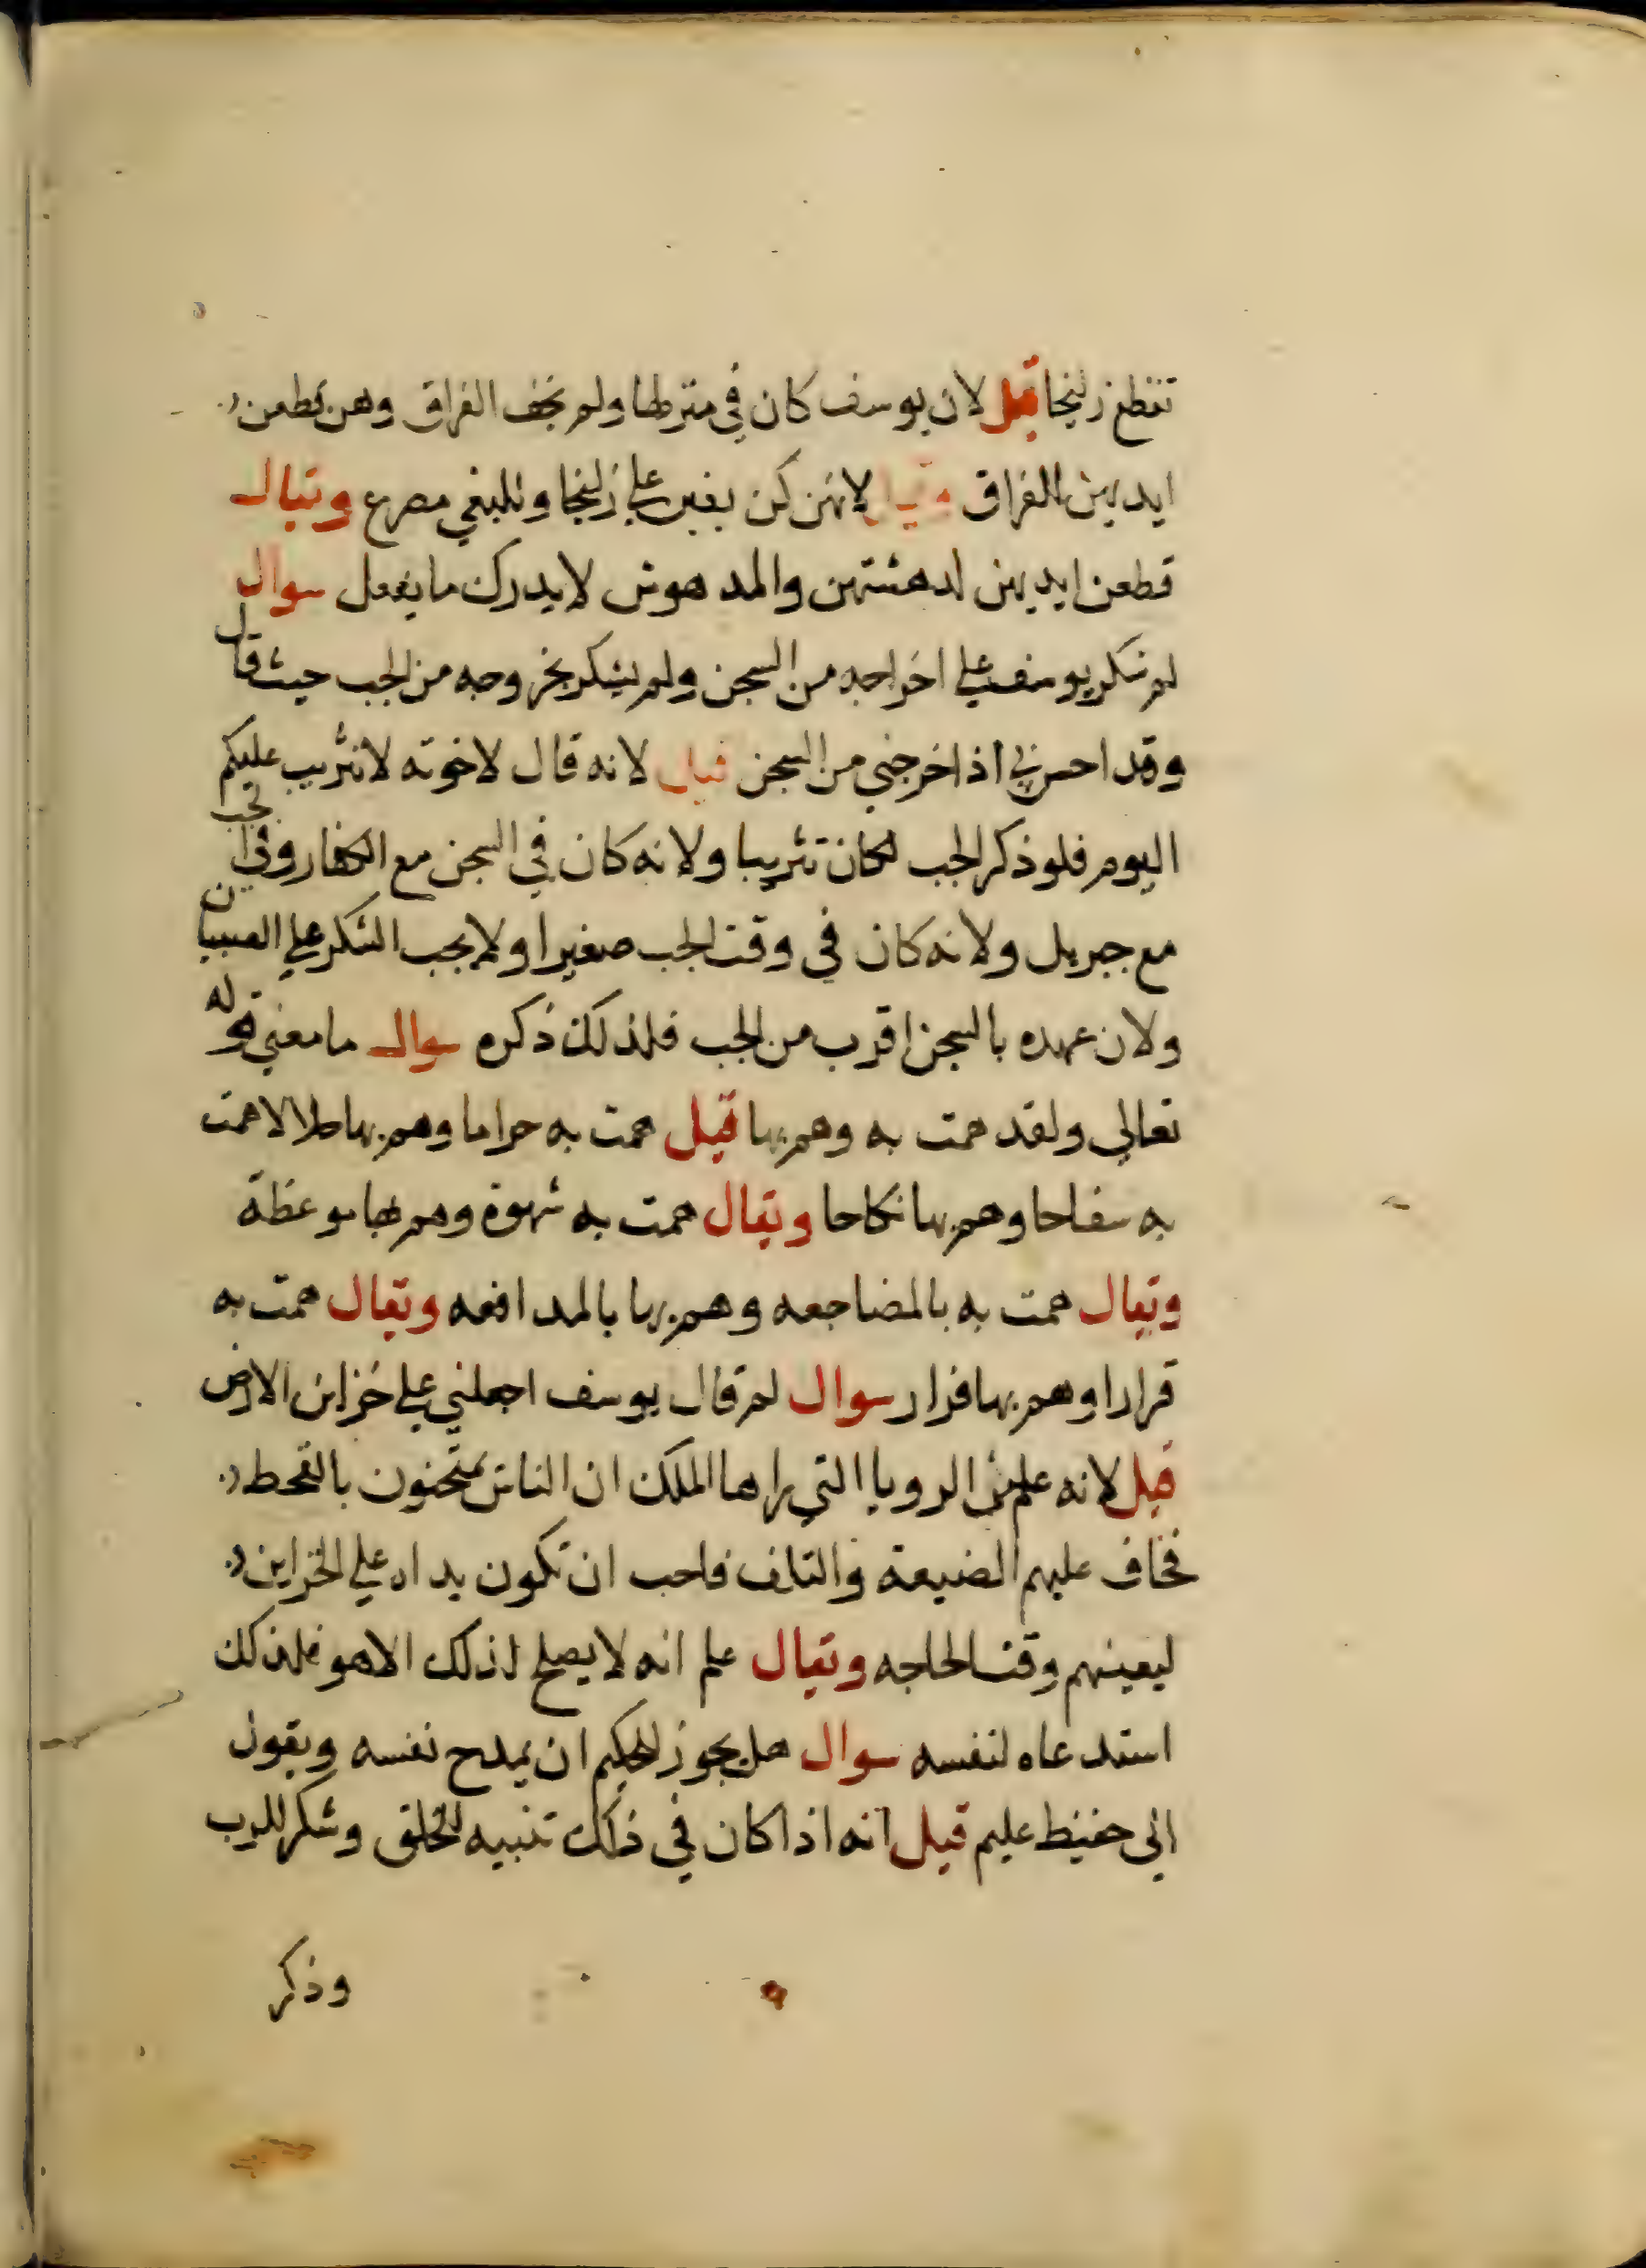 تقطع زليخا قيل لان يوسف كان في منزلها ولم تخف الفراق وهن قطعن
ايديهن للفراق وقيل لانهن كن يغبن علي زليخا وللبغي مصرع ويقال
قطعن ايديهن لدهشتهن والمدهوش لا يدرك ما يفعل سوال
لم شكر يوسف علي اخراجه من السجن ولم يشكر بخروجه من الجب حيث قال
وقد احسن بي اذ اخرجني من السجن قيل لانه قال لاخوته لا تثريب عليكم
اليوم فلو ذكر الجب لكان تثريبا ولانه كان في السجن مع الكفار وفي الجب
مع جبريل ولانه كان في وقت الجب صغيرا ولا يجب الشكر علي الصبيان
ولان عهده بالسجن اقرب من الجب فلذلك ذكره سوال ما معني قوله
تعالي ولقد همت به وهم بها قيل همت به حراما وهم بها حلالا همت
به سفاحا وهم بها نكاحا ويقال همت به شهوة وهم بها موعظة
ويقال همت به بالمضاجعه وهم بها بالمدافعه ويقال همت به
قرارا وهم بها فرار سوال لم قال يوسف اجعلني علي خزاين الارض
قيل لانه علم من الرويا التي راها الملك ان الناس يمتحنون بالقحط
فخاف عليهم الضيعة والتلف فاحب ان تكون يداه علي الخزاين
ليعينهم وقت الحاجه ويقال علم انه لا يصلح لذلك الا هو فلذلك
استدعاه لنفسه سوال هل يجوز للحكيم ان يمدح نفسه ويقول
اني حفيظ عليم قيل انه اذا كان في ذلك تنبيه للخلق وشكر للرب
وذكر